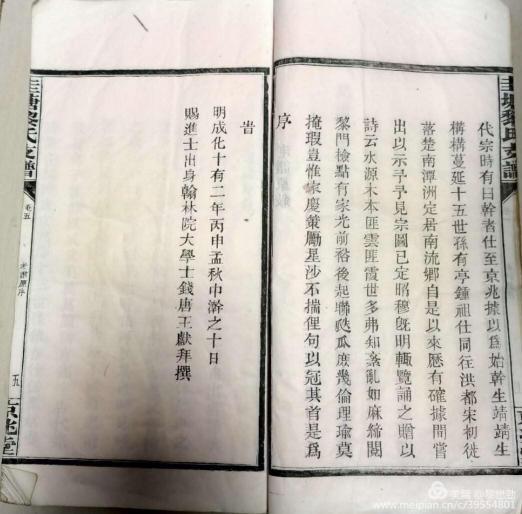 代宗時有曰幹者仕至京兆據以爲始幹生靖靖生
構構蔓延十五世孫有亭鐘祖仕同往洪都宋初徙
落楚南潭洲定居南流鄉自是以來歷有確據間嘗
出以示予予見宗圖已定昭穆旣明輒覽誦之贈以
詩云水源木本匪雲匪霞世多弗知紊亂如麻締閱
黎門檢點有家光前裕後起聯瓞瓜庶幾倫理瑜莫
掩瑕豈惟家慶策勵星沙不揣俚句以冠其首是爲
序
旹
明成化十有二年丙申孟秋中澣之十日
賜進士出身翰林院大學士錢唐王獻拜撰
圭塘黎氏支譜
卷五
老譜原序
五
京兆堂
美篇 @黎世勁
www.meipian.cn/c/39554801